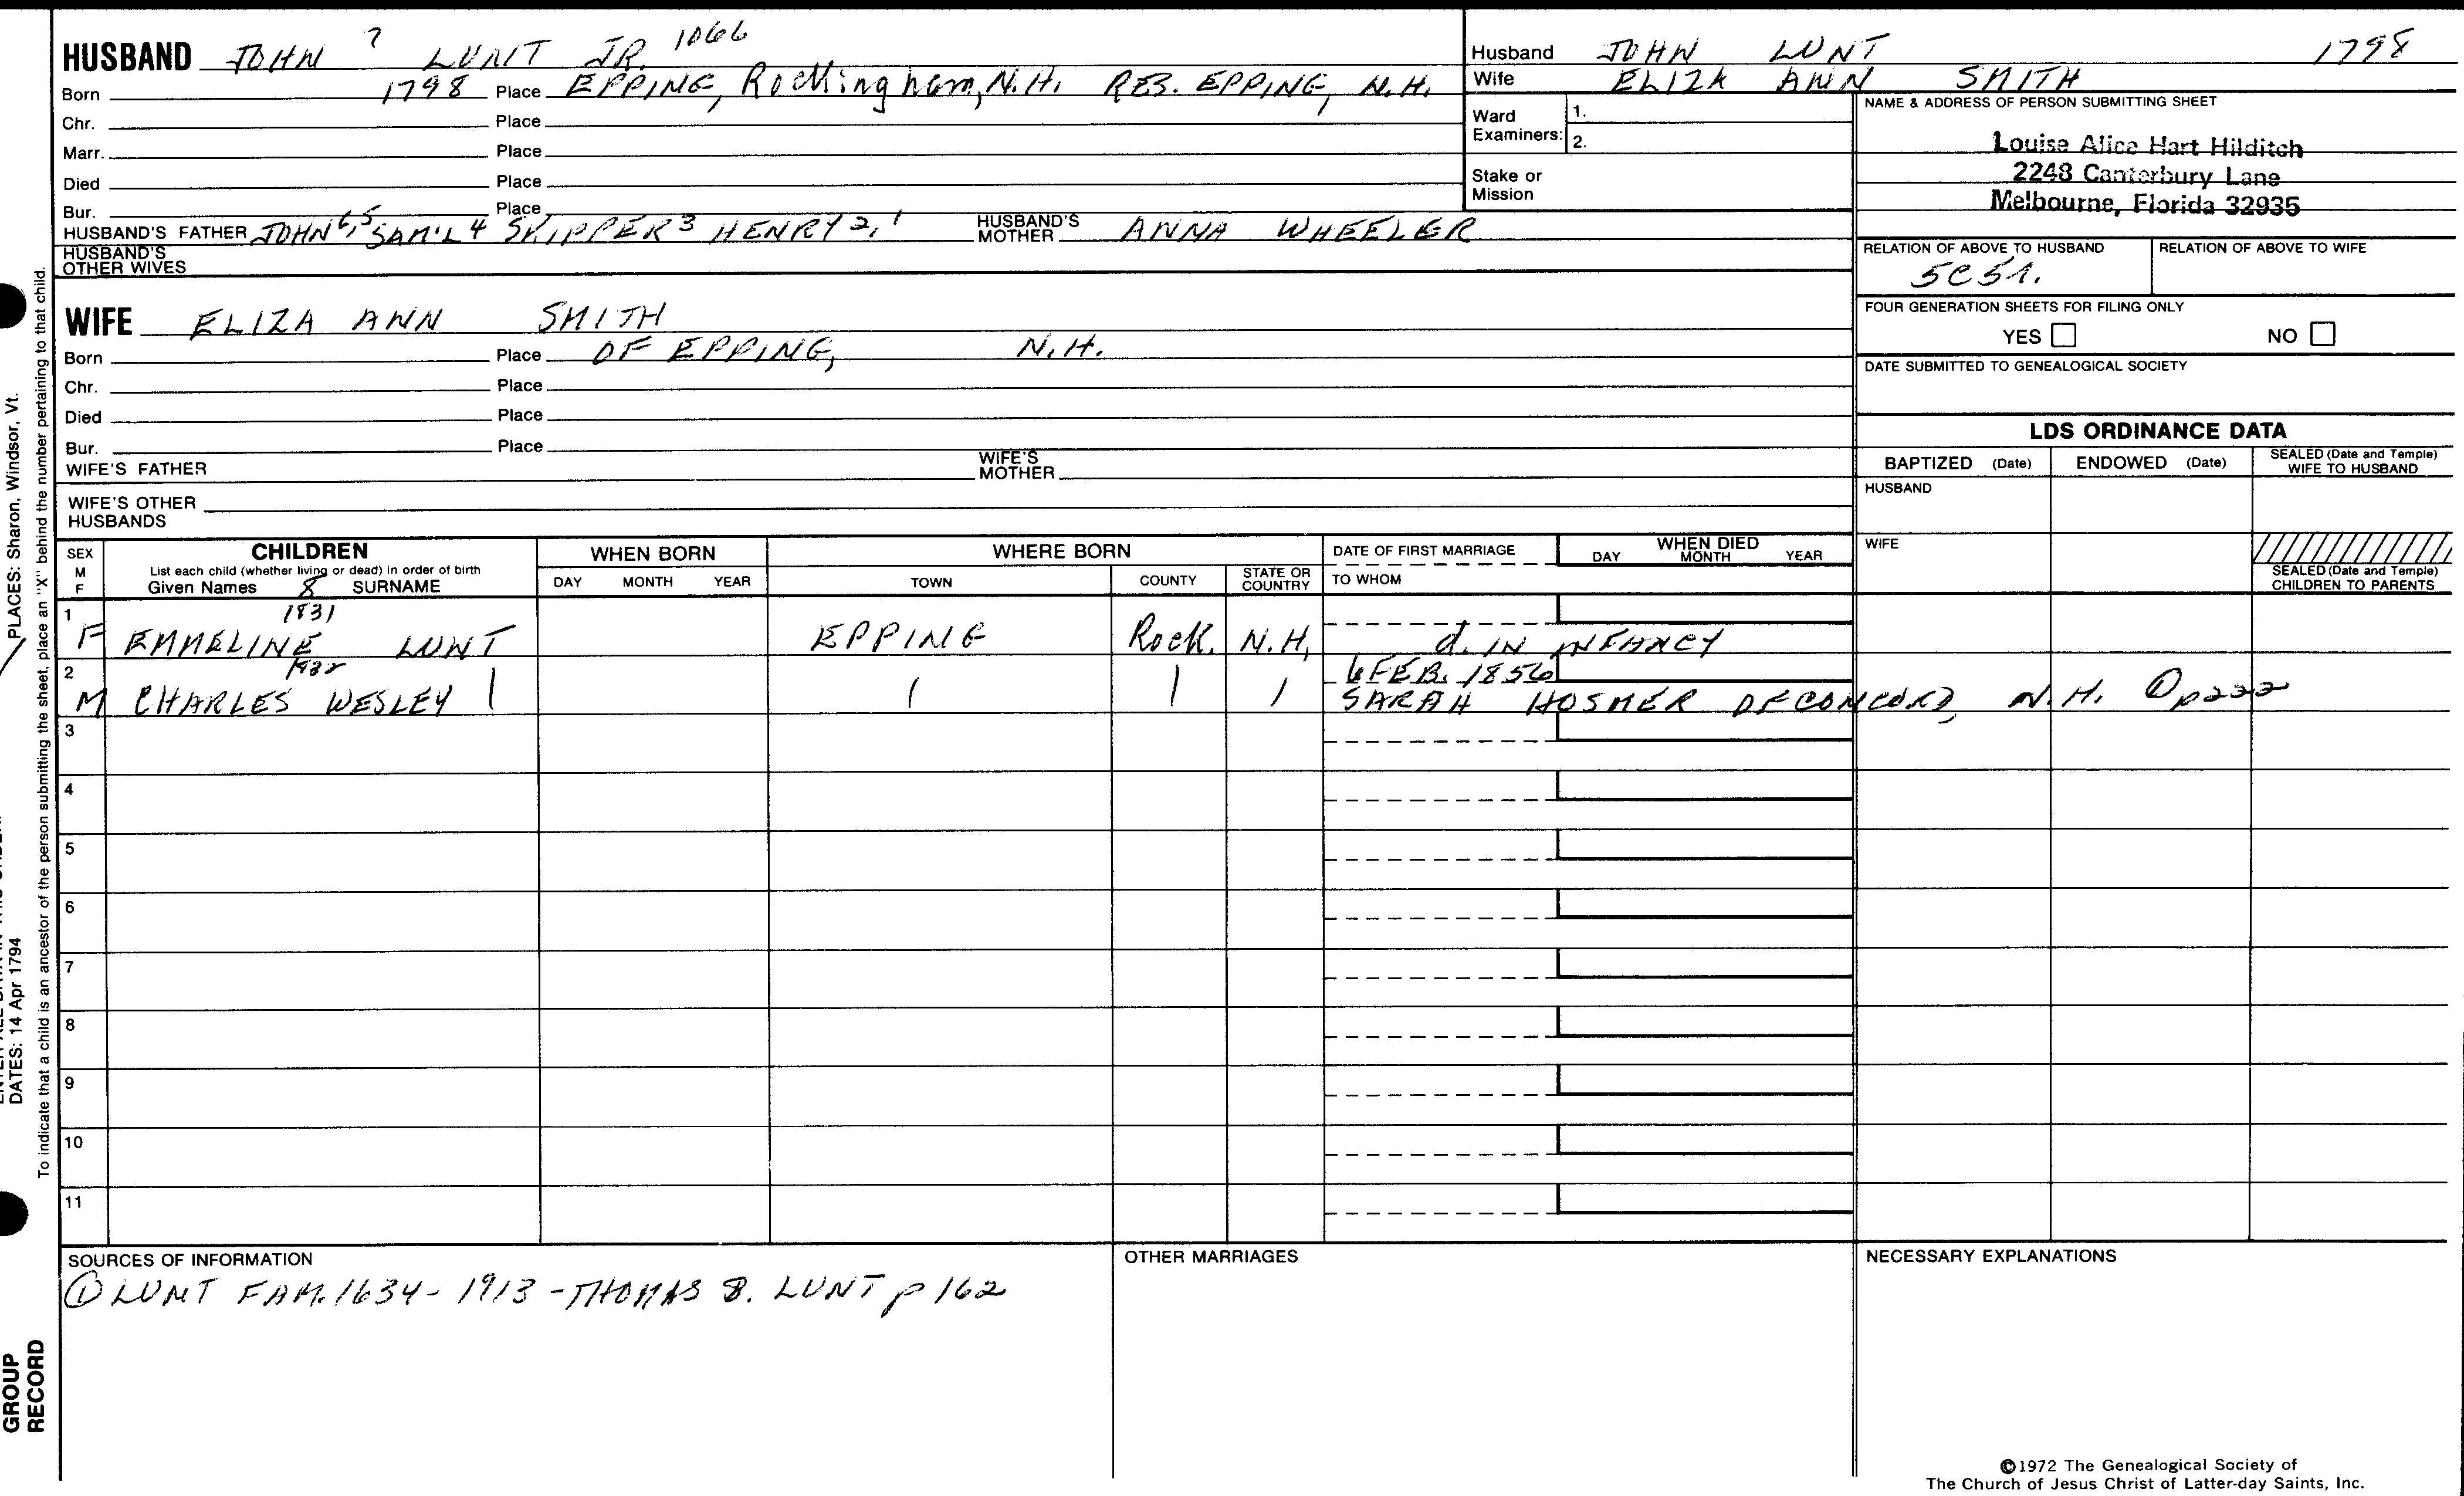 HUSBAND JOHN 7 LUNT JR. 1066
Born 1798 Place EPPING, Rockingham, N.H. RES. EPPING, N.H.
Chr. Place
Marr. Place
Died Place
Bur. Place
HUSBAND'S FATHER JOHN 6,5 SAM'L 4 SKIPPER 3 HENRY 2,1 HUSBAND'S MOTHER ANNA WHEELER
HUSBAND'S OTHER WIVES
WIFE ELIZA ANN SMITH
Born Place OF EPPING, N.H.
Chr. Place
Died Place
Bur. Place
WIFE'S FATHER WIFE'S MOTHER
WIFE'S OTHER HUSBANDS
Husband JOHN LUNT 1798
Wife ELIZA ANN SMITH
Ward Examiners: 1.
2.
Stake or Mission
NAME & ADDRESS OF PERSON SUBMITTING SHEET
Louise Alice Hart Hilditch
2248 Canterbury Lane
Melbourne, Florida 32935
RELATION OF ABOVE TO HUSBAND RELATION OF ABOVE TO WIFE
FOUR GENERATION SHEETS FOR FILING ONLY
YES NO
DATE SUBMITTED TO GENEALOGICAL SOCIETY
LDS ORDINANCE DATA
BAPTIZED (Date) ENDOWED (Date) SEALED (Date and Temple) WIFE TO HUSBAND
HUSBAND
WIFE
SEALED (Date and Temple) CHILDREN TO PARENTS
SEX M F
CHILDREN
List each child (whether living or dead) in order of birth
Given Names 8 SURNAME
WHEN BORN
DAY MONTH YEAR
WHERE BORN
TOWN COUNTY STATE OR COUNTRY
DATE OF FIRST MARRIAGE
TO WHOM
WHEN DIED
DAY MONTH YEAR
1 1831
F EMMELINE LUNT EPPING Rock. N.H. d. IN INFANCY
2 1932 6 FEB. 1856
M CHARLES WESLEY SARAH HOSMER OF CONCORD, N.H. ① p222
3
4
5
6
7
8
9
10
11
SOURCES OF INFORMATION
① LUNT FAM. 1634-1913 - THOMAS S. LUNT p 162
OTHER MARRIAGES
NECESSARY EXPLANATIONS
©1972 The Genealogical Society of
The Church of Jesus Christ of Latter-day Saints, Inc.
PLACES: Sharon, Windsor, Vt.
DATES: 14 Apr 1794
To indicate that a child is an ancestor of the person submitting the sheet, place an "X" behind the number pertaining to that child.
GROUP
RECORD